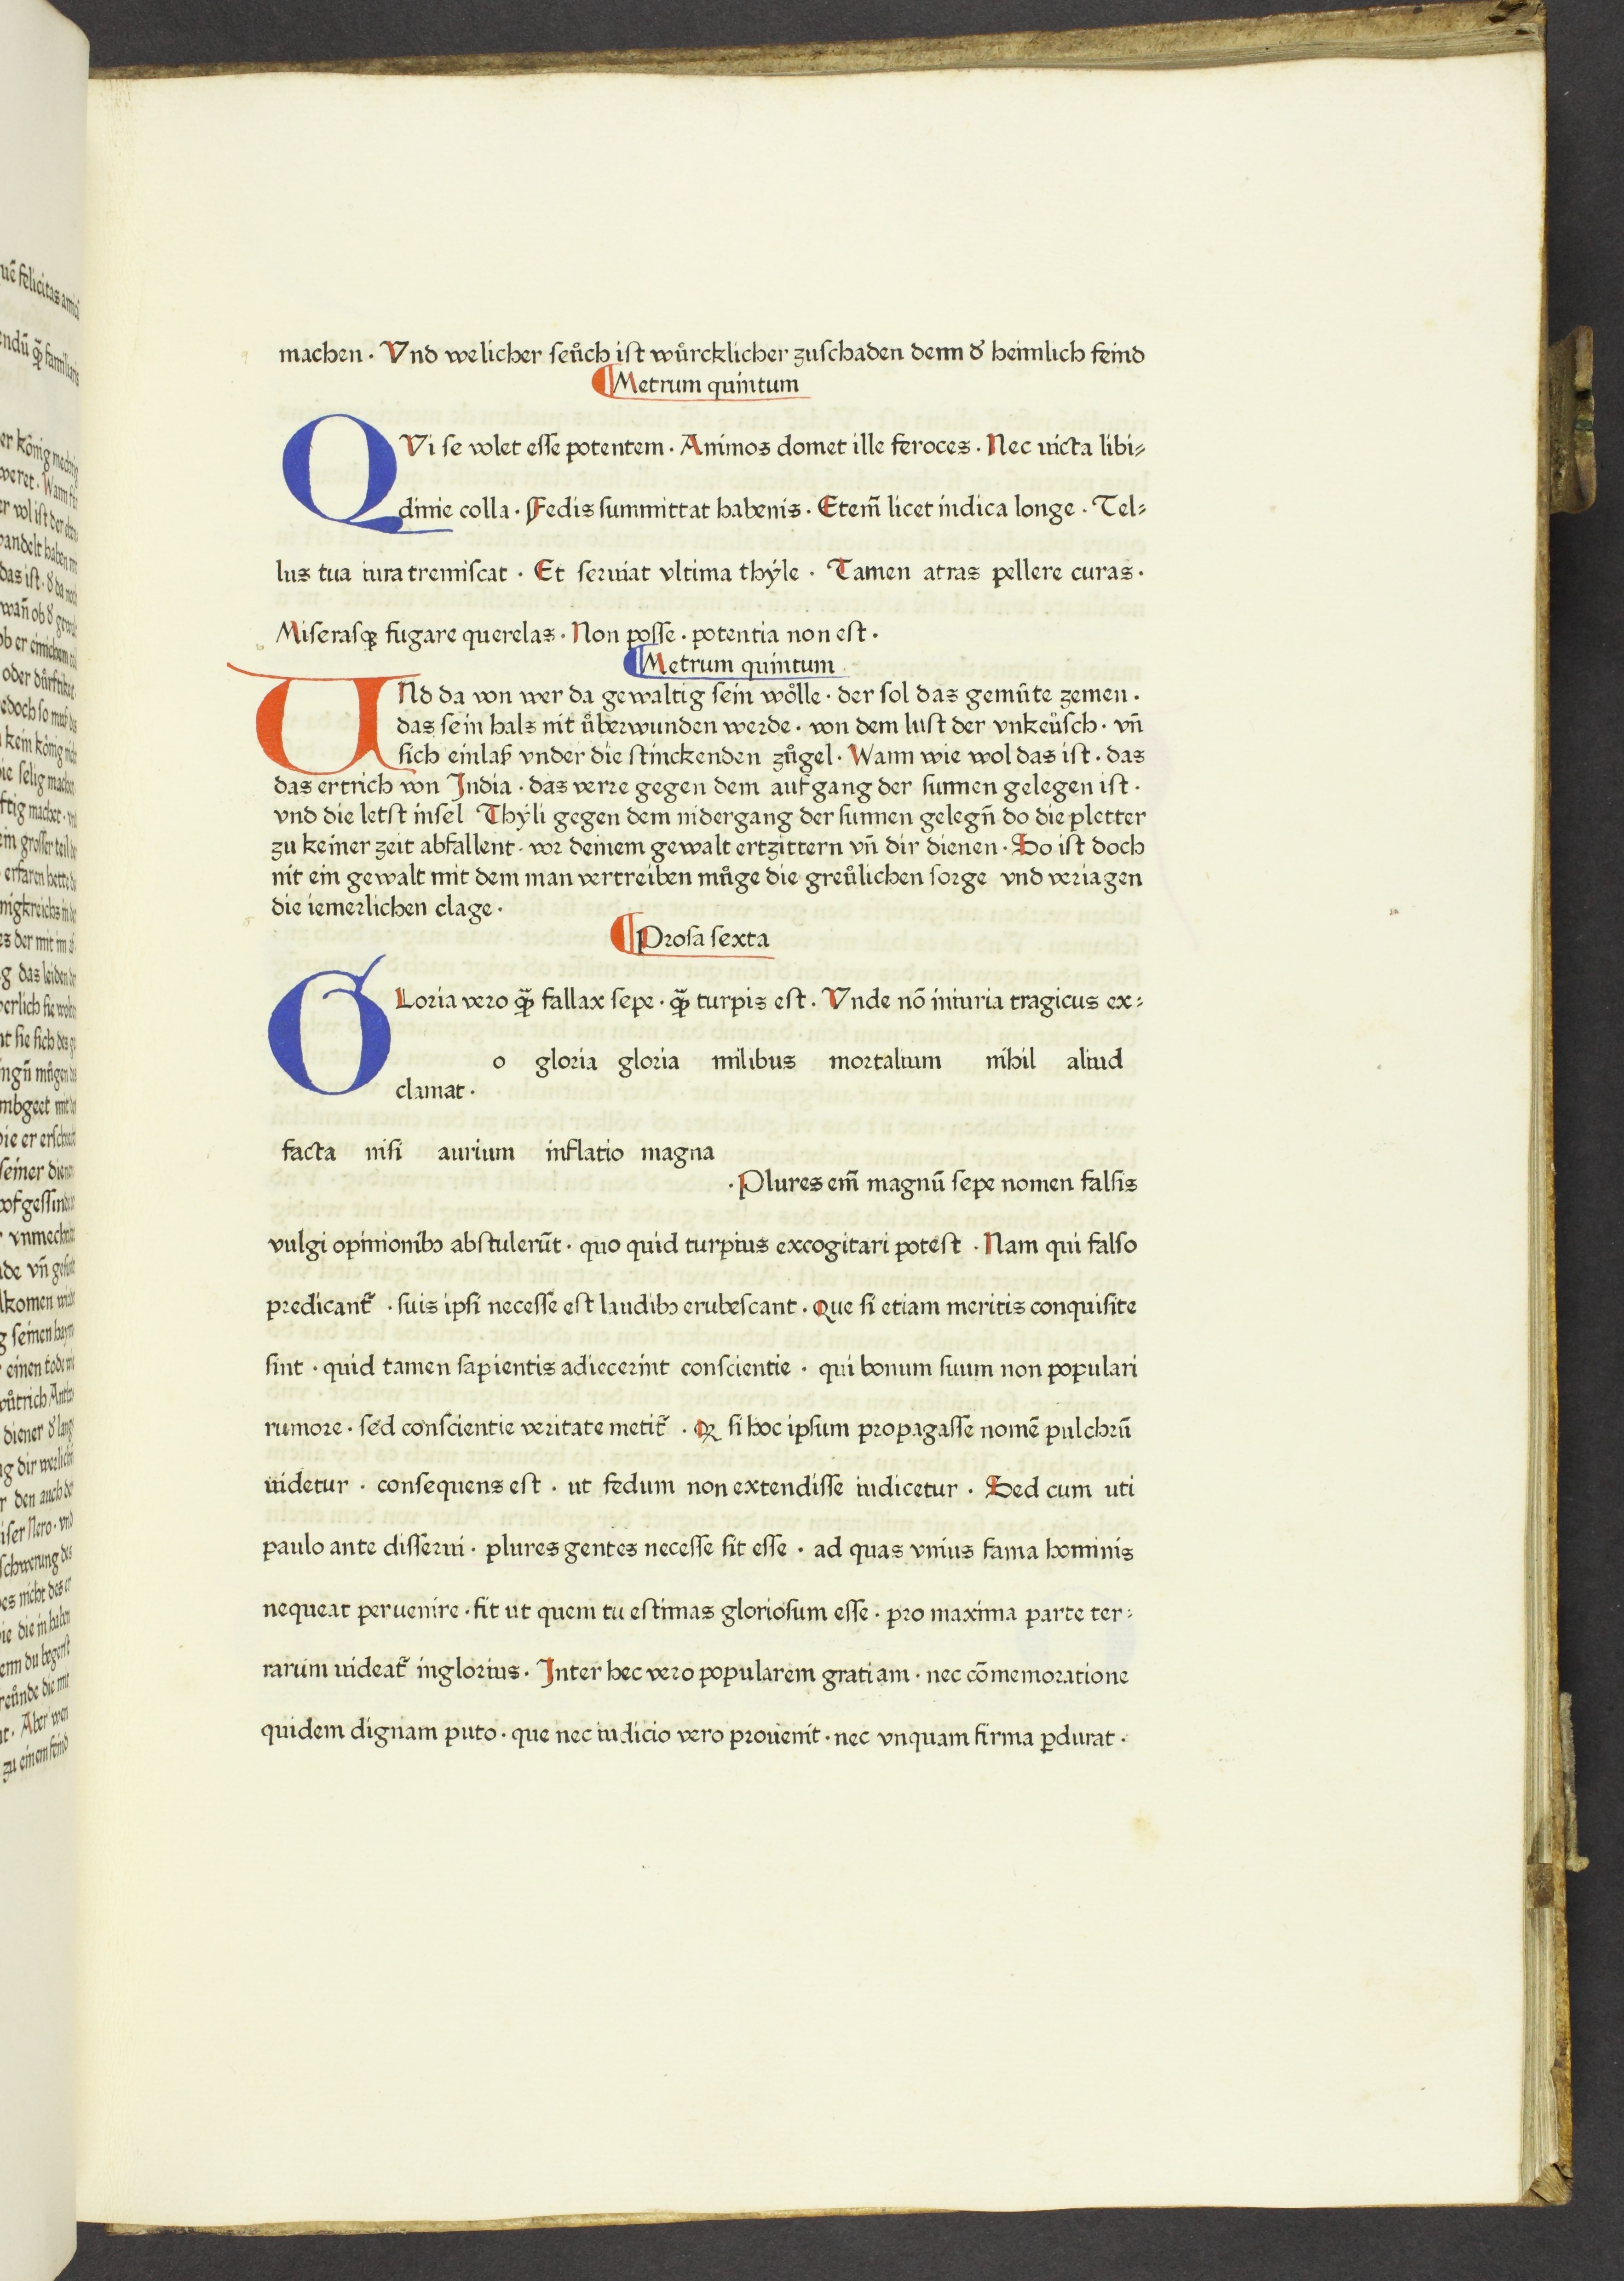 machen · Vnd welicher seůch ist wůrcklicher zuschaden denn d' heimlich feind
¶Metrum quintum
QVi se volet esse potentem · Animos domet ille feroces · Nec uicta libi⸗
dinie colla · Fedis summittat habenis · Etem̃ licet indica longe · Tel⸗
lus tua iura tremiscat · Et seruiat vltima thÿle · Tamen atras pellere curas ·
Miserasqꝫ fugare querelas · Non posse · potentia non est ·
¶Metrum quintum
UNd da von wer da gewaltig sein wo̊lle · der sol das gemu̇te zemen ·
das sein hals nit ůberwunden werde · von dem lust der vnkeůsch · vn̄
sich einlaß vnder die stinckenden zůgel · Wann wie wol das ist · das
das ertrich von India · das verre gegen dem aufgang der sunnen gelegen ist ·
vnd die letst insel Thÿli gegen dem nidergang der sunnen gelegn̄ do die pletter
zu keiner zeit abfallent · vor deinem gewalt ertzittern vn̄ dir dienen · So ist doch
nit ein gewalt mit dem man vertreiben můge die greůlichen sorge vnd veriagen
die iemerlichen clage ·
¶Prosa sexta
GLoria vero qꝫ̃ fallax sepe · qꝫ̃ turpis est · Vnde nō iniuria tragicus ex⸗
o gloria gloria milibus mortalium nihil aliud
clamat ·
facta nisi aurium inflatio magna
· Plures em̃ magnū sepe nomen falsis
vulgi opinionibꝰ abstulerūt · quo quid turpius excogitari potest · Nam qui falso
predicant᷑ · suis ipsi necesse est laudibꝰ erubescant · Que si etiam meritis conquisite
sint · quid tamen sapientis adiecerint conscientie · qui bonum suum non populari
rumore · sed conscientie veritate metit᷑ · Qꝫ si hoc ipsum propagasse nomē pulchrū
uidetur · consequens est · ut fedum non extendisse iudicetur · Sed cum uti
paulo ante disserui · plures gentes necesse sit esse · ad quas vnius fama hominis
nequeat peruenire · fit ut quem tu estimas gloriosum esse · pro maxima parte ter⸗
rarum uideat᷑ inglorius · Inter hec vero popularem gratiam · nec cōmemoratione
quidem dignam puto · que nec iudicio vero prouenit · nec vnquam firma ꝑdurat ·